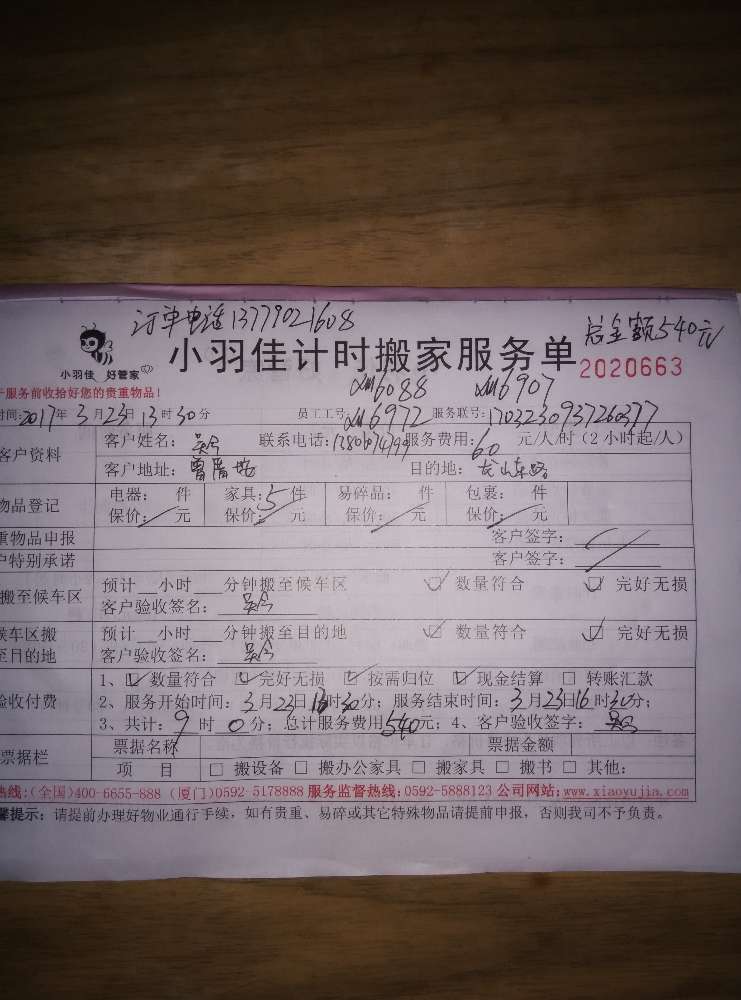 订单电话13779021608
总金额540元
小羽佳 好管家
小羽佳计时搬家服务单
2020663
服务前收拾好您的贵重物品!
时间:2017年3月23日13时30分 员工工号: xm6088 xm6907 xm6972 服务联号:1703230937260377
客户资料
客户姓名: 联系电话: 服务费用:60元/人/时(2小时起/人)
客户地址:曾厝垵 目的地:龙山东路
物品登记
电器: 件 家具:5件 易碎品: 件 包裹: 件
保价: 元 保价: 元 保价: 元 保价: 元
重物品申报 客户签字:
户特别承诺 客户签字:
搬至候车区
预计__小时___分钟搬至候车区 ☑ 数量符合 ☑ 完好无损
客户验收签名:
候车区搬至目的地
预计__小时___分钟搬至目的地 ☑ 数量符合 ☑ 完好无损
客户验收签名:
验收付费
1、☑ 数量符合 ☑ 完好无损 ☑ 按需归位 ☑ 现金结算 □ 转账汇款
2、服务开始时间:3月23日13时30分;服务结束时间:3月23日16时30分;
3、共计:9时0分;总计服务费用540元;4、客户验收签字:
票据栏
票据名称 票据金额
项 目 □ 搬设备 □ 搬办公家具 □ 搬家具 □ 搬书 □ 其他:
热线:(全国)400-6655-888 (厦门)0592-5178888 服务监督热线:0592-5888123 公司网站:www.xiaoyujia.com
馨提示:请提前办理好物业通行手续,如有贵重、易碎或其它特殊物品请提前申报,否则我司不予负责。